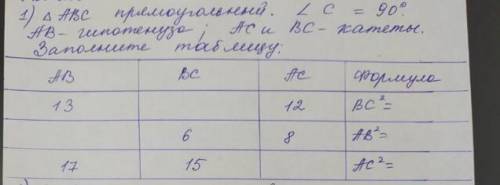 1) △ ABC прямоугольный. ∠ C = 90°.
AB - гипотенуза, AC и BC - катеты.
Заполните таблицу:
AB BC AC Формула
13 12 BC²=
6 8 AB²=
17 15 AC²=